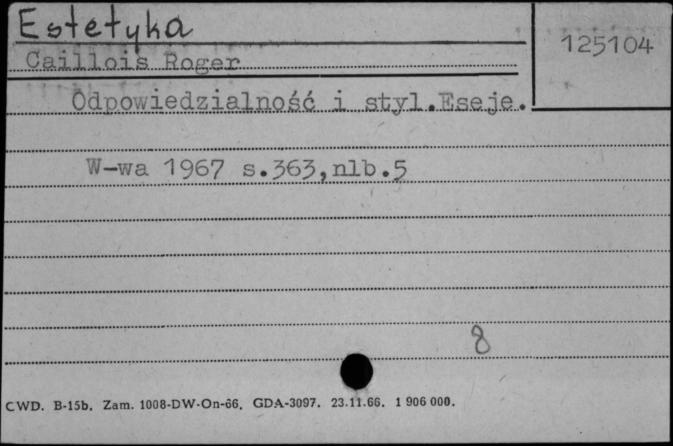 Estetyka
125104
Caillois Roger
Odpowiedzialność i styl.Eseje.
W-wa 1967 s.363,nlb.5
8
CWD. B-15b. Zam. 1008-DW-On-66. GDA-3097. 23.11.66. 1 906 000.